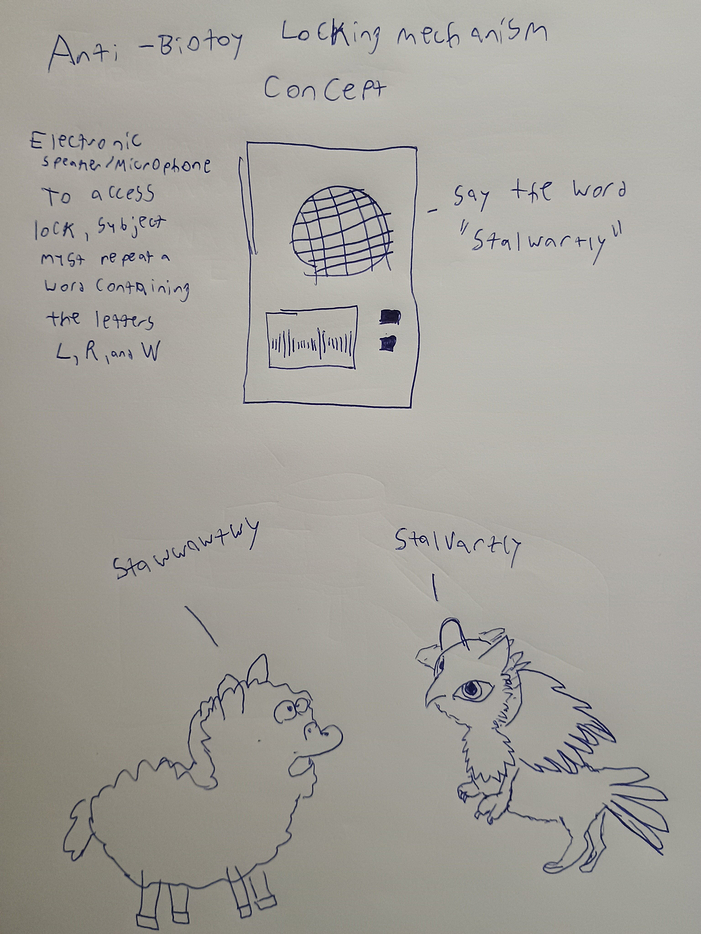 Anti-Biotoy Locking mechanism
Concept
Electronic
speaker/Microphone
To access
lock, subject
must repeat a
word containing
the letters
L, R, and W
Say the word
"Stalwartly"
Stawwawtwy
Stalvartly